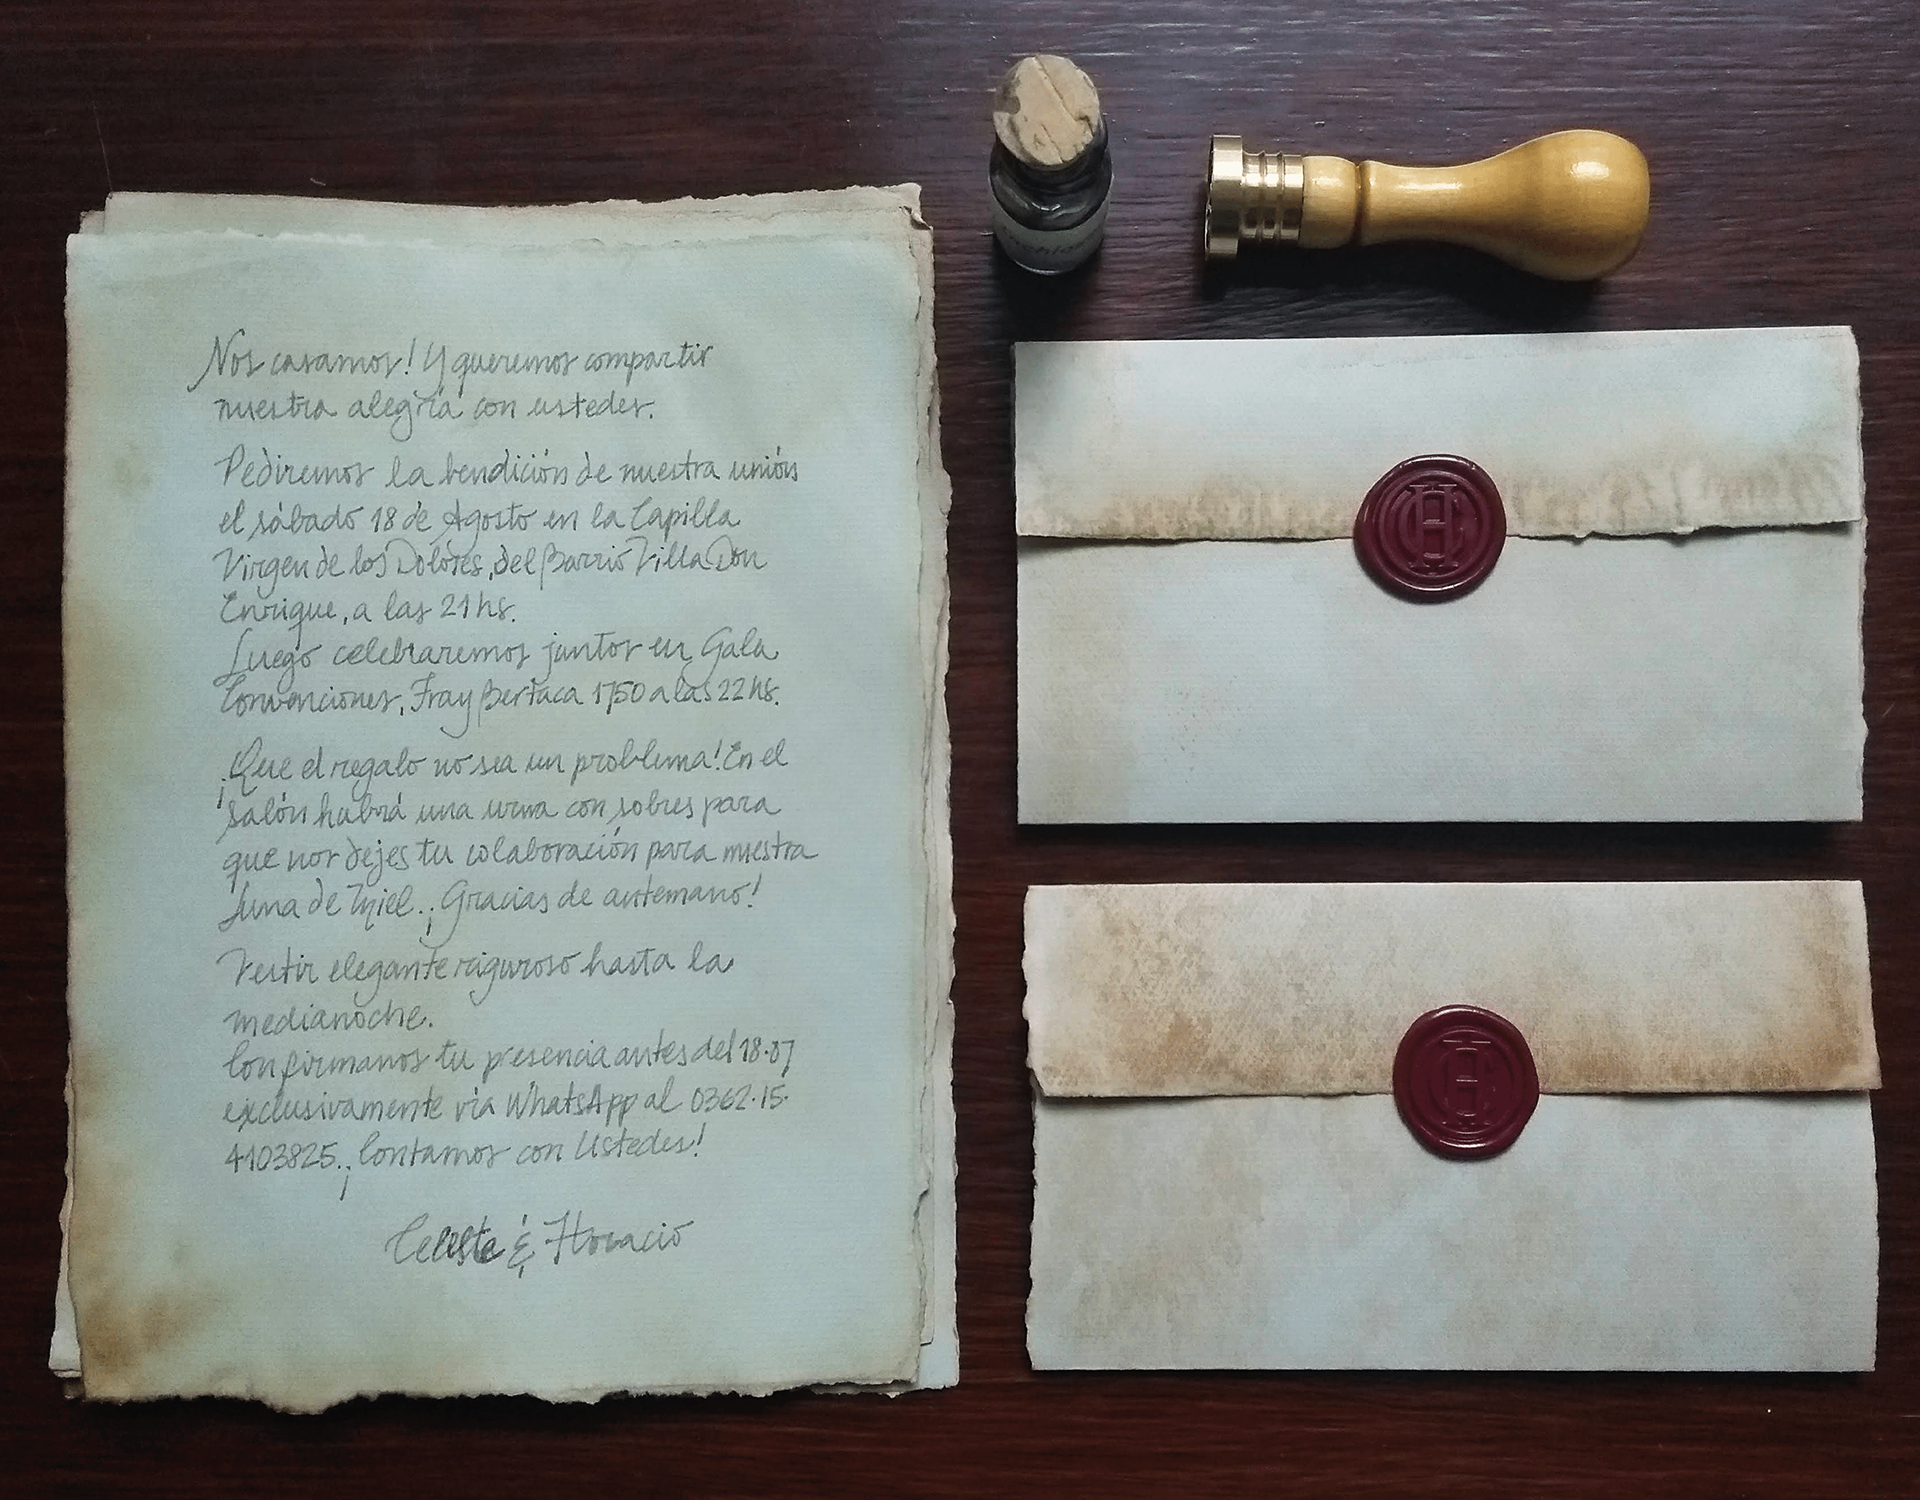 Nos casamos! Y queremos compartir
nuestra alegría con ustedes.
Pediremos la bendición de nuestra unión
el sábado 18 de Agosto en la Capilla
Virgen de los Dolores, del Barrio Villa Don
Enrique, a las 21 hs.
Luego celebraremos juntos en Gala
Convenciones, Fray Bertaca 1750 a las 22 hs.
¡Que el regalo no sea un problema! En el
salón habrá una urna con sobres para
que nos dejes tu colaboración para nuestra
Luna de Miel. ¡Gracias de antemano!
Vestir elegante riguroso hasta la
medianoche.
Confirmanos tu presencia antes del 18·07
exclusivamente vía WhatsApp al 0362·15·
4103825. ¡Contamos con Ustedes!
Celeste & Horacio
CH
CH